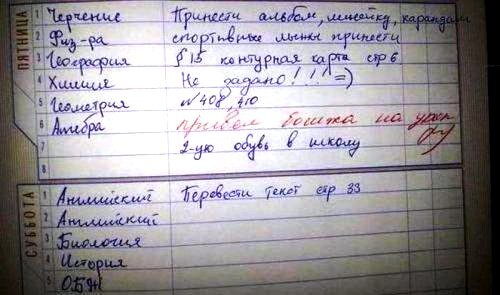 ПЯТНИЦА
1 Черчение Принести альбом, линейку, карандаш
2 Физ-ра спортивные лыжи принести
3 География § 15 контурная карта стр 6
4 Химия Не задано!!! =)
5 Геометрия № 408, 410
6 Алгебра бошка на
7 2-ую обувь в школу
8
СУББОТА
1 Английский Перевести текст стр 33
2 Английский
3 Биология
4 История
5 ОБЖ